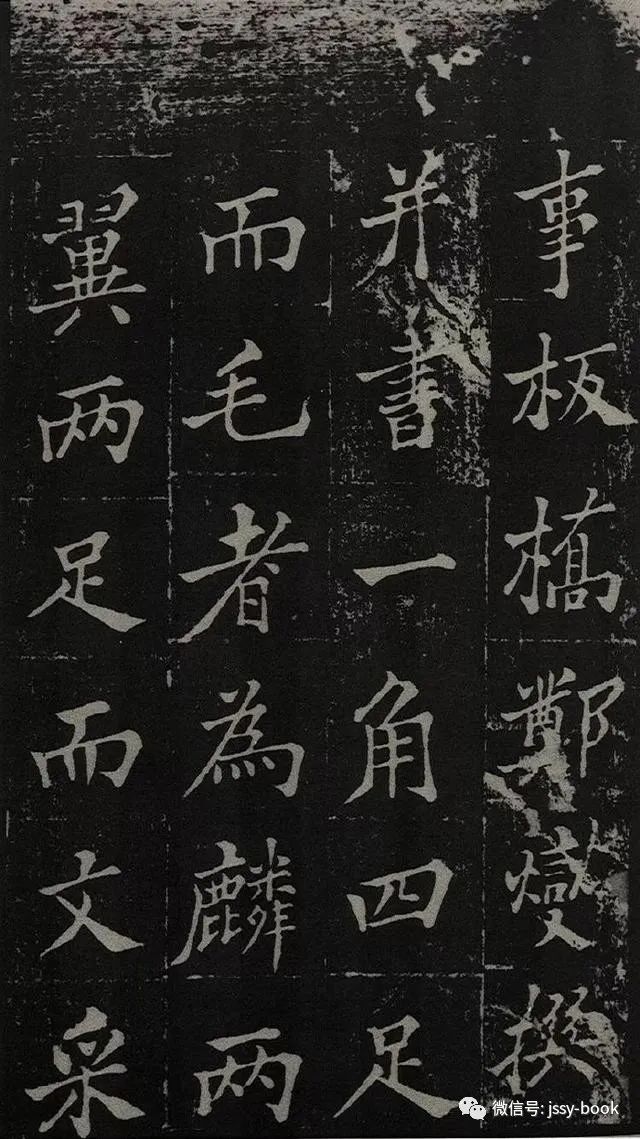 事板橋鄭燮撰
并書一角四足
而毛者為麟两
翼两足而文采
微信号: jssy-book